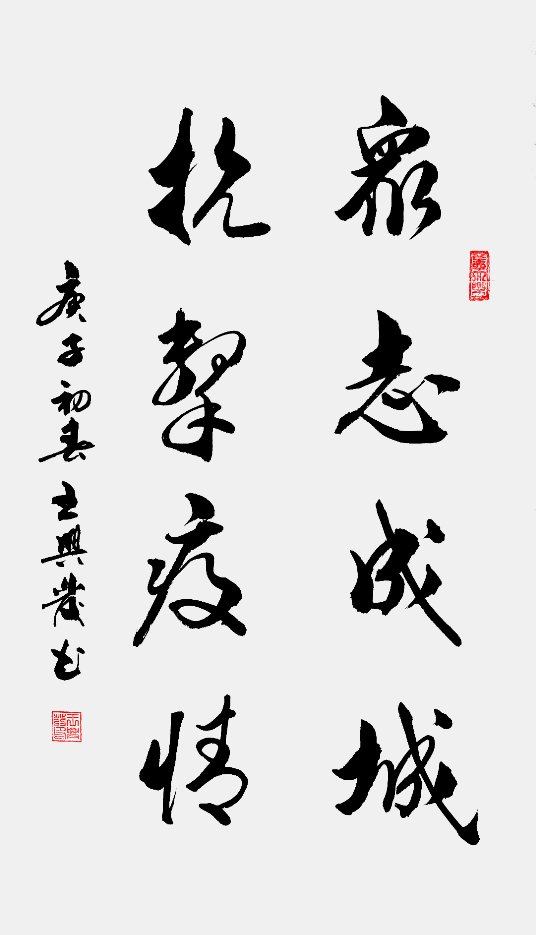 衆志成城
抗擊疫情
庚子初春王興發书